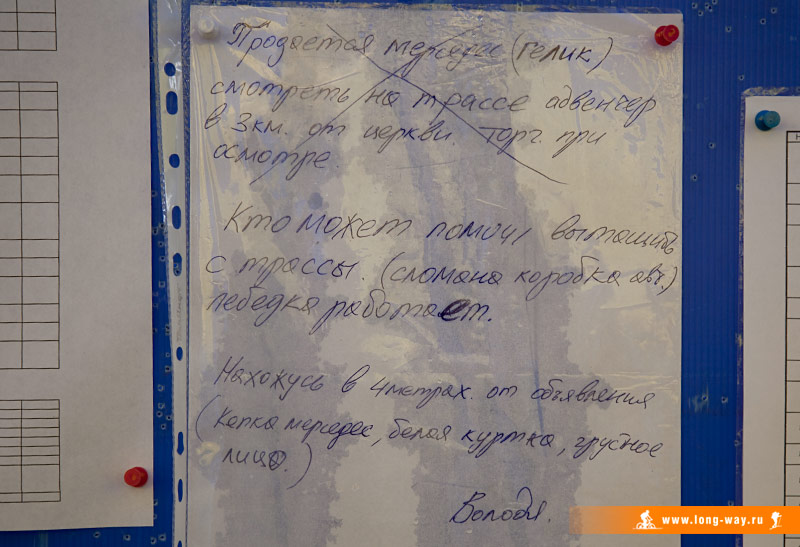 Продается мерседес (гелик)
смотреть на трассе адвенчер
в 3км. от церкви. Торг. при
осмотре.
Кто может помочь вытащить
с трассы. (сломана коробка авт.)
лебедка работает.
Нахожусь в 4метрах. от объявления
(Кепка мерседес, белая куртка, грустное
лицо.)
Володя.
www.long-way.ru